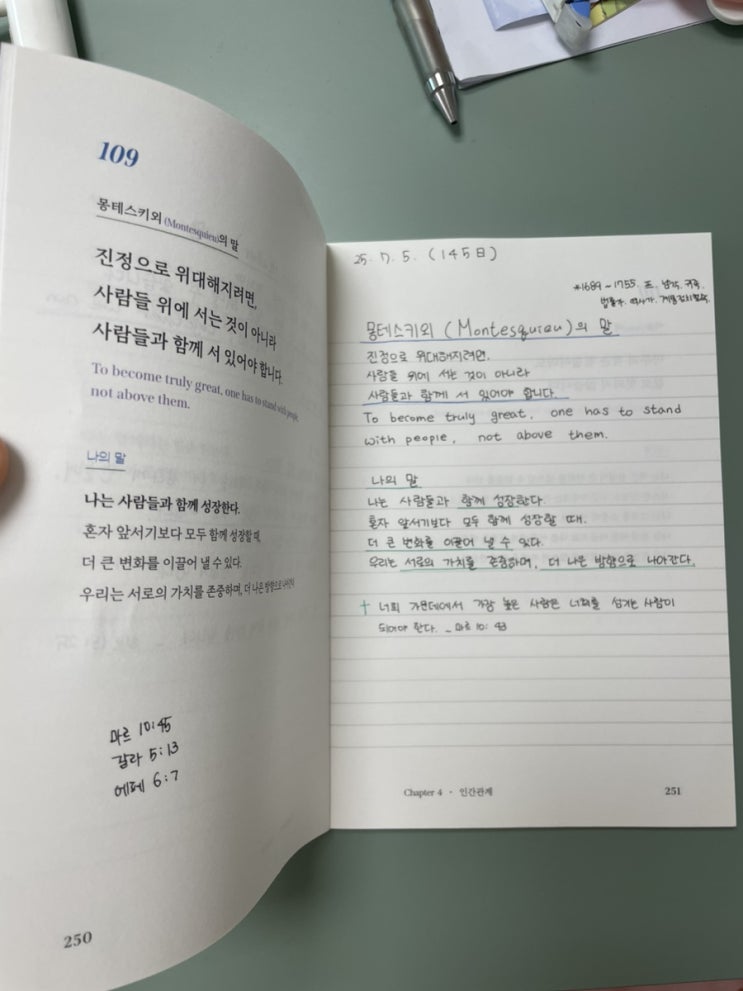 109
몽테스키외 (Montesquieu)의 말
진정으로 위대해지려면,
사람들 위에 서는 것이 아니라
사람들과 함께 서 있어야 합니다.
To become truly great, one has to stand with people,
not above them.
나의 말
나는 사람들과 함께 성장한다.
혼자 앞서기보다 모두 함께 성장할 때,
더 큰 변화를 이끌어 낼 수 있다.
우리는 서로의 가치를 존중하며, 더 나은 방향으로 나아간다
마르 10:45
갈라 5:13
에페 6:7
250
25. 7. 5. (145日)
*1689~1755. 프. 남작. 귀족.
법률가. 역사가. 계몽정치철학.
몽테스키외 (Montesquieu)의 말
진정으로 위대해지려면,
사람들 위에 서는 것이 아니라
사람들과 함께 서 있어야 합니다.
To become truly great, one has to stand
with people, not above them.
나의 말
나는 사람들과 함께 성장한다.
혼자 앞서기보다 모두 함께 성장할 때,
더 큰 변화를 이끌어 낼 수 있다.
우리는 서로의 가치를 존중하며, 더 나은 방향으로 나아간다.
† 너희 가운데에서 가장 높은 사람은 너희를 섬기는 사람이
되어야 한다. _ 마르 10:43
Chapter 4 · 인간관계
251